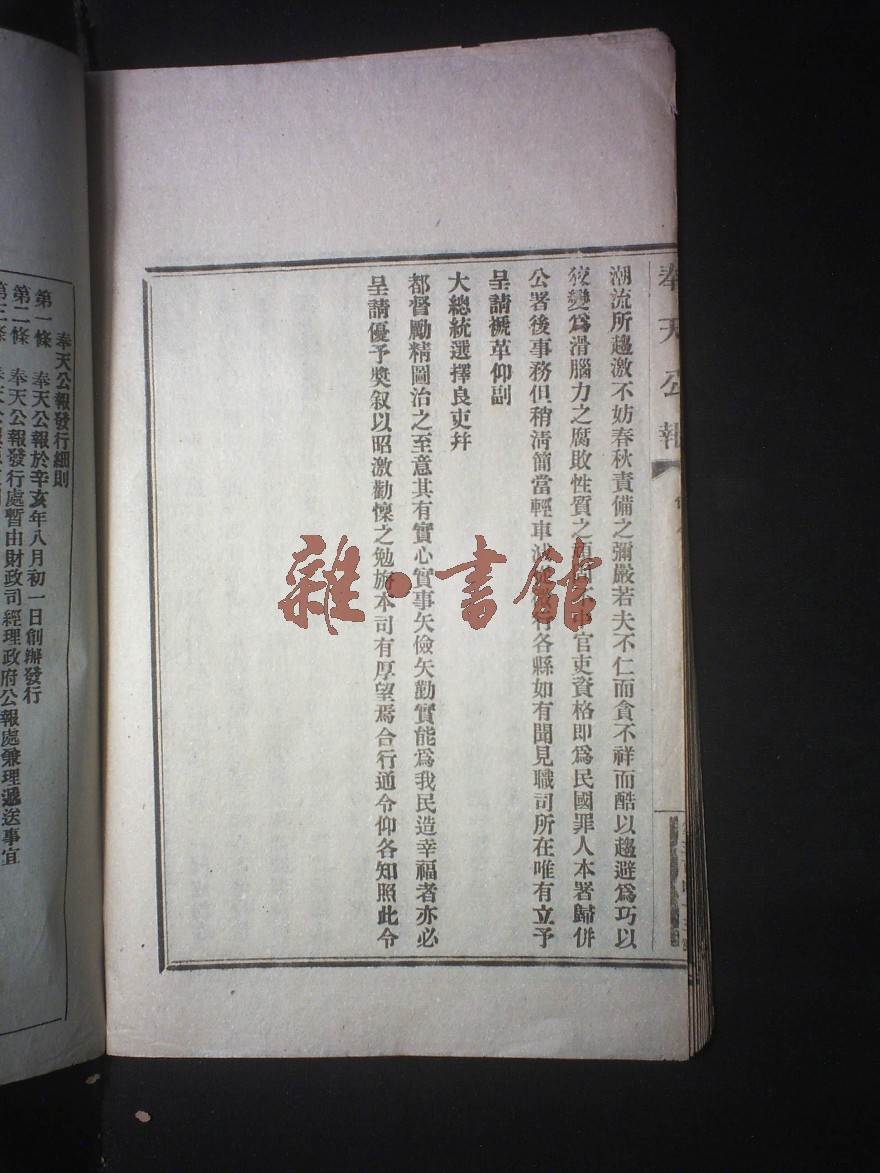 奉天公報
潮流所趨激不妨春秋責備之彌嚴若夫不仁而貪不祥而酷以趨避爲巧以
狡變爲滑腦力之腐敗性質之頑固不中官吏資格即爲民國罪人本署歸併
公署後事務但稍淸簡當輕車減各縣如有聞見職司所在唯有立予
呈請褫革仰副
大總統選擇良吏幷
都督勵精圖治之至意其有實心實事矢儉矢勤實能爲我民造幸福者亦必
呈請優予奬叙以昭激勸懍之勉旃本司有厚望焉合行通令仰各知照此令
雜·書館
奉天公報發行細則
第一條 奉天公報於辛亥年八月初一日創辦發行
第二條 奉天公報發行處暫由財政司經理政府公報處兼理遞送事宜
第三條